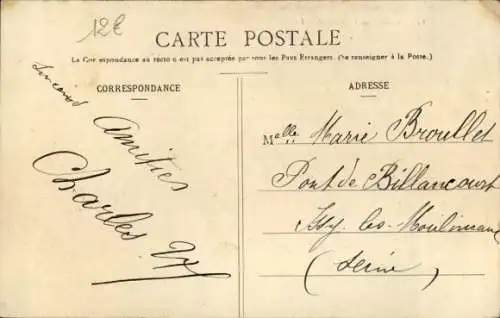 12€
CARTE POSTALE
La Correspondance au recto n'est pas acceptée par tous les Pays Étrangers. (Se renseigner à la Poste.)
CORRESPONDANCE
Sincères
Amitiés
Charles
ADRESSE
Melle Marie Broullet
Pont de Billancourt
Issy les Moulineaux
(Seine)